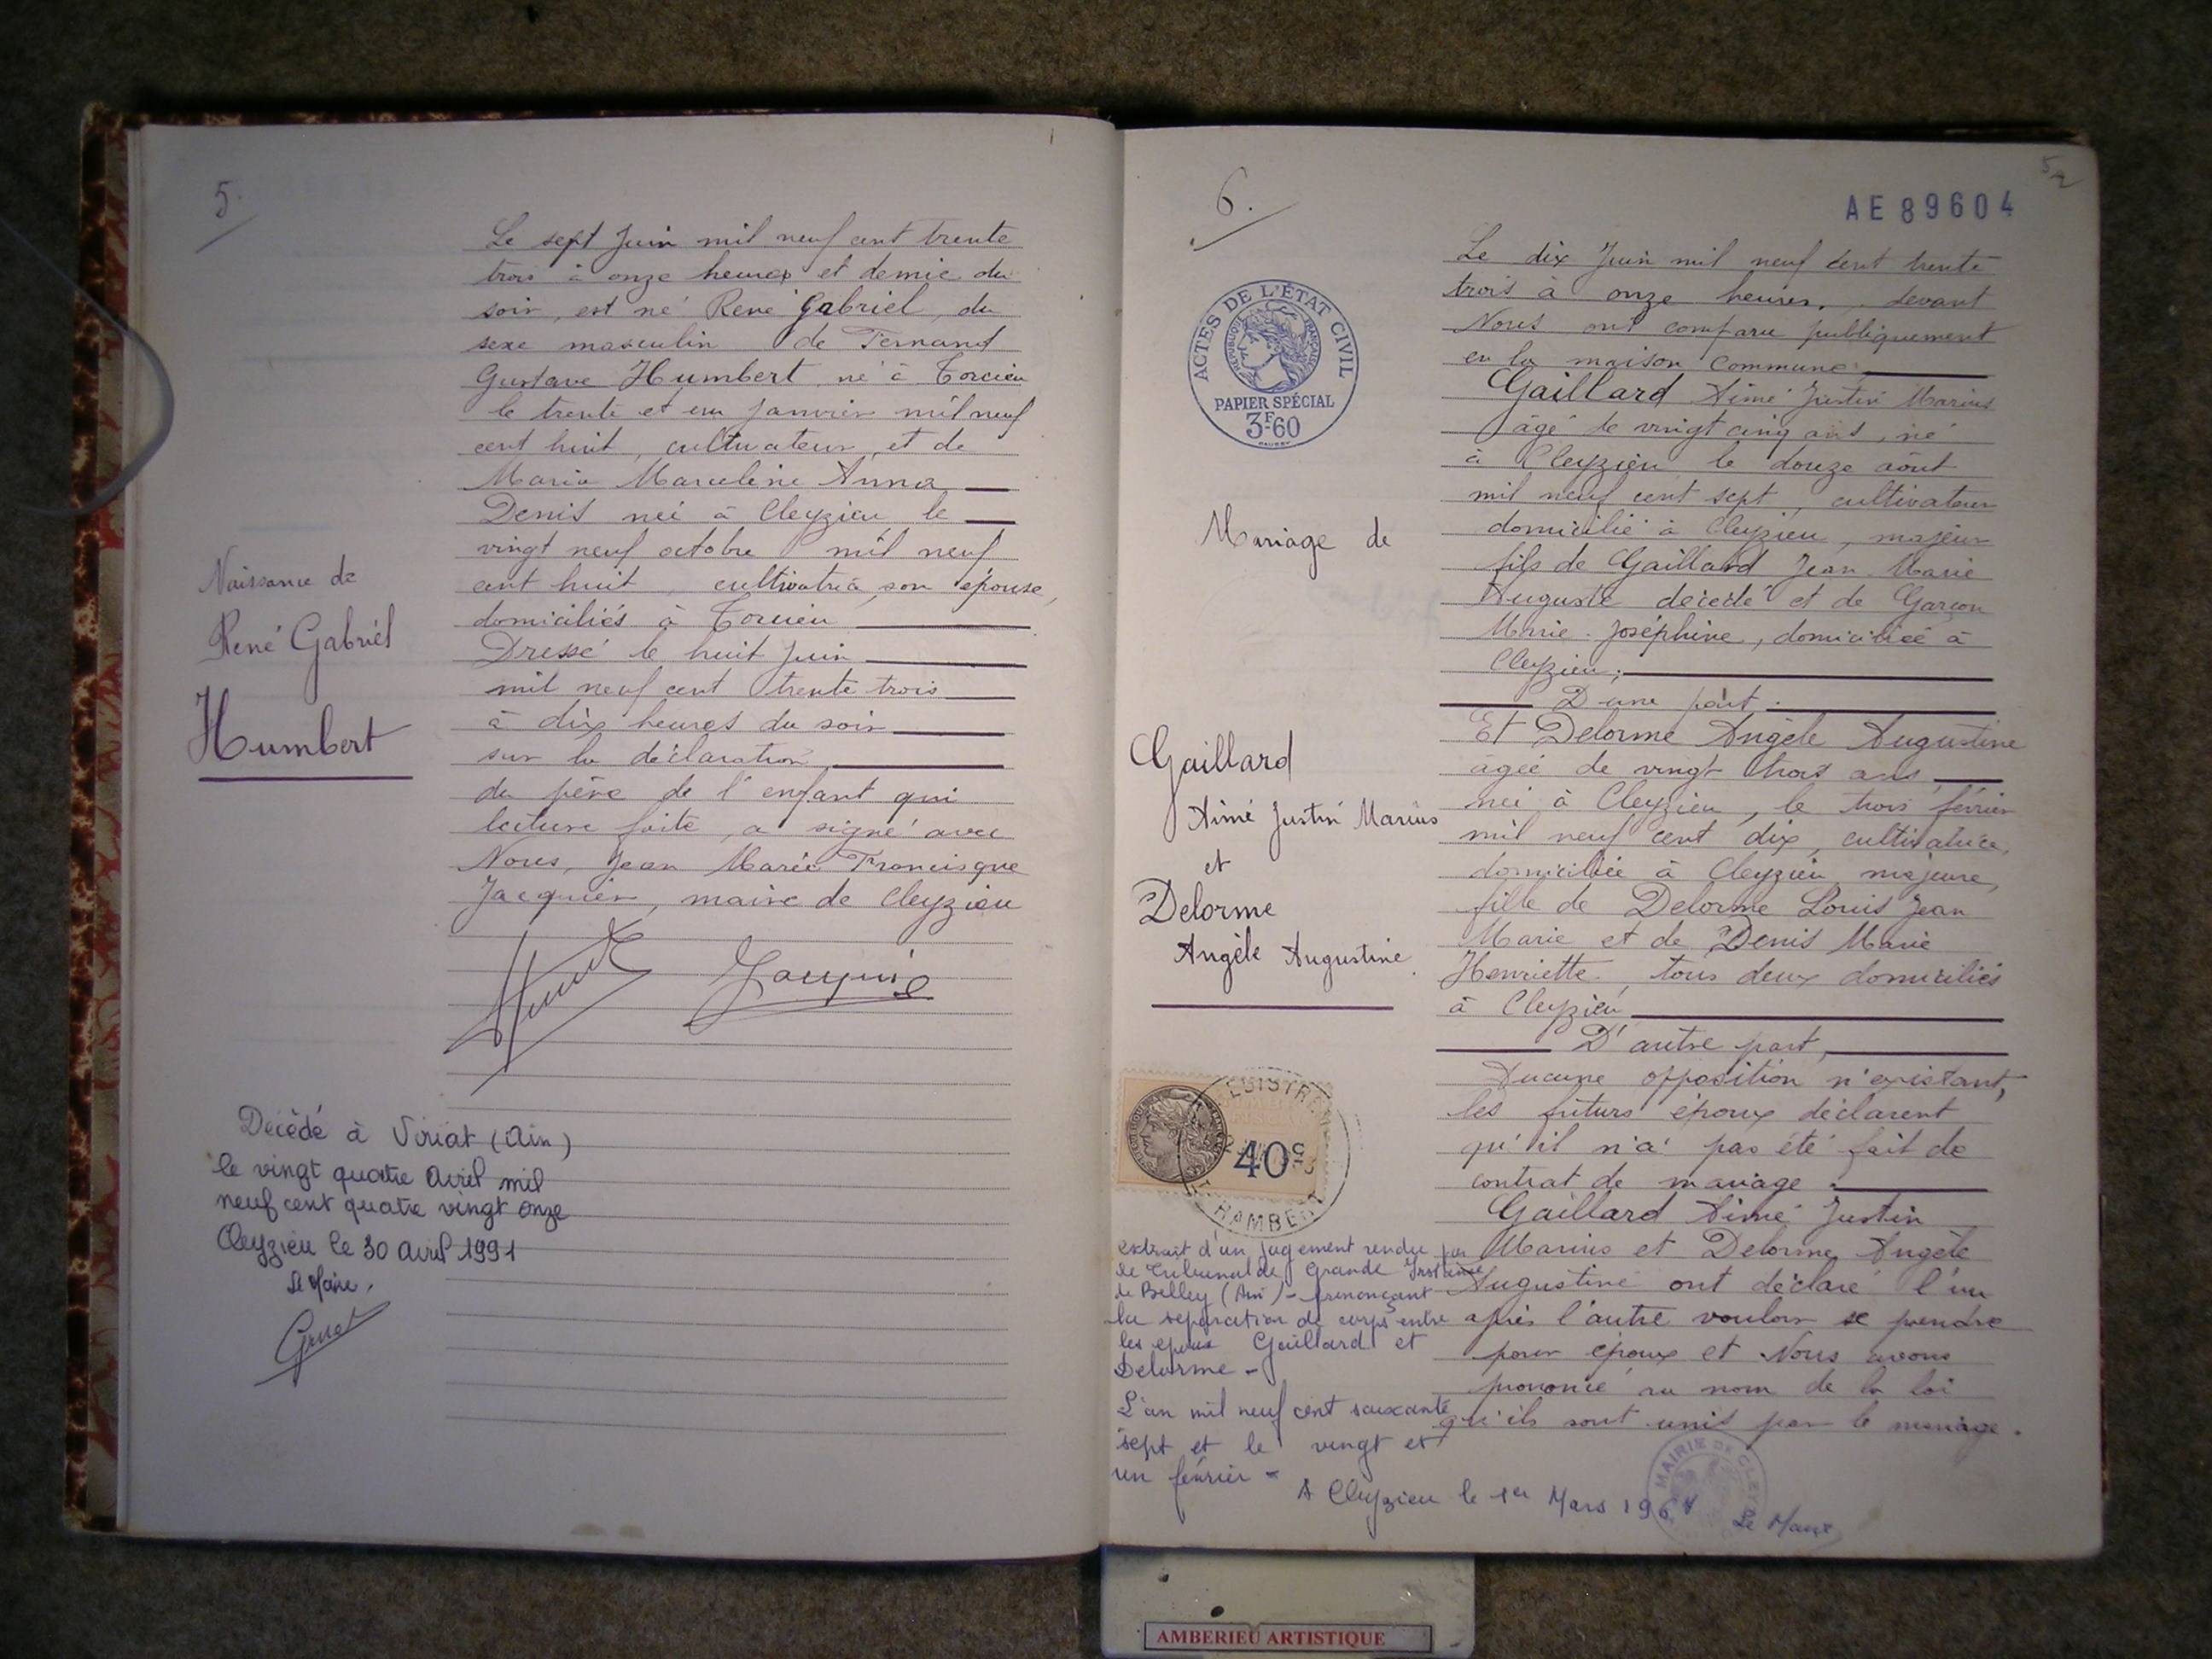 5.
Le sept Juin mil neuf cent trente
trois à onze heures et demie du
soir, est né René Gabriel, du
sexe masculin de Fernand
Gustave Humbert né à Torcieu
le trente et un Janvier mil neuf
cent huit, cultivateur, et de
Maria Marceline Anna
Denis née à Cleyzieu le
vingt neuf octobre mil neuf
cent huit, cultivatrice, son épouse,
domiciliés à Torcieu
Dressé le huit Juin
mil neuf cent trente trois
à dix heures du soir
sur la déclaration
du père de l'enfant qui
lecture faite, a signé avec
Nous, Jean Marie Francisque
Jacquier, maire de Cleyzieu
Naissance de
René Gabriel
Humbert
Décédé à Viriat (Ain)
le vingt quatre Avril mil
neuf cent quatre vingt onze
Cleyzieu le 30 Avril 1991
Le Maire,
6.
AE 89604
ACTES DE L'ÉTAT CIVIL
RÉPUBLIQUE FRANÇAISE
PAPIER SPÉCIAL
3F.60
Mariage de
Gaillard
Aimé Justin Marius
et
Delorme
Angèle Augustine
Le dix Juin mil neuf cent trente
trois a onze heures, devant
Nous ont comparu publiquement
en la maison commune
Gaillard Aimé Justin Marius
âgé de vingt cinq ans, né
à Cleyzieu le douze août
mil neuf cent sept, cultivateur
domicilié à Cleyzieu, majeur
fils de Gaillard Jean Marie
Auguste décédé et de Garçon
Marie Joséphine, domiciliée à
Cleyzieu;
D'une part.
Et Delorme Angèle Augustine
agée de vingt trois ans
née à Cleyzieu, le trois février
mil neuf cent dix, cultivatrice,
domiciliée à Cleyzieu majeure,
fille de Delorme Louis Jean
Marie et de Denis Marie
Henriette, tous deux domiciliés
à Cleyzieu
D'autre part,
Aucune opposition n'existant,
les futurs époux déclarent
qu'il n'a pas été fait de
contrat de mariage.
Gaillard Aimé Justin
Marius et Delorme Angèle
Augustine ont déclaré l'un
après l'autre vouloir se prendre
pour époux et Nous avons
prononcé au nom de la loi
qu'ils sont unis par le mariage.
40c
extrait d'un jugement rendu par
le Tribunal de Grande Instance
de Belley (Ain) - prononçant
la séparation de corps entre
les époux Gaillard et
Delorme -
L'an mil neuf cent soixante
sept et le vingt et
un février -
A Cleyzieu le 1er Mars
Le Maire
MAIRIE DE CLEYZIEU
AMBERIEU ARTISTIQUE